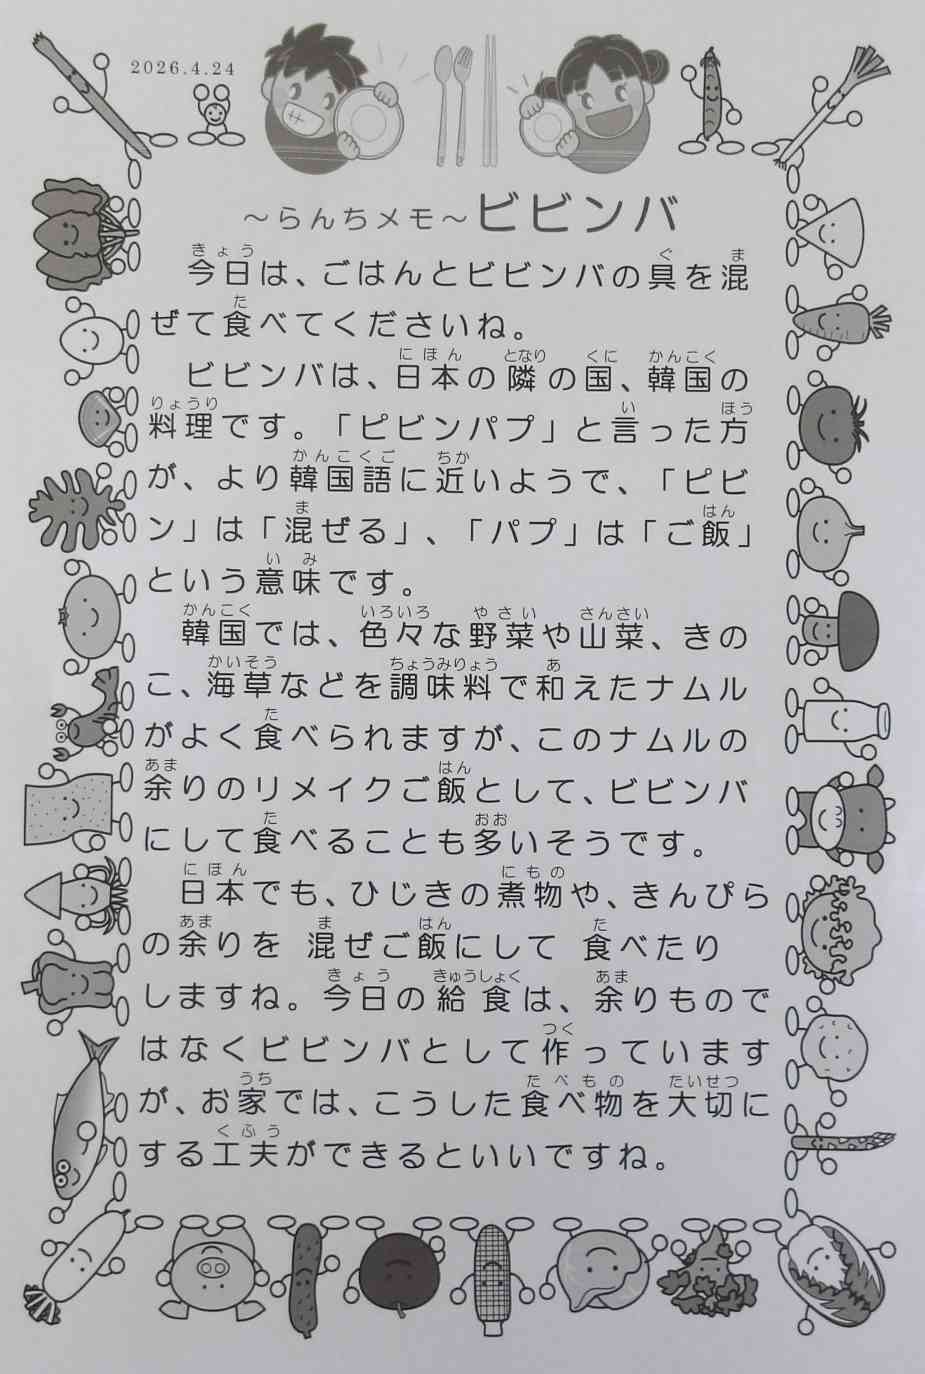 2026.4.24
～らんちメモ～ビビンバ
今日は、ごはんとビビンバの具を混
ぜて食べてくださいね。
ビビンバは、日本の隣の国、韓国の
料理です。「ピビンパプ」と言った方
が、より韓国語に近いようで、「ピビ
ン」は「混ぜる」、「パプ」は「ご飯」
という意味です。
韓国では、色々な野菜や山菜、きの
こ、海草などを調味料で和えたナムル
がよく食べられますが、このナムルの
余りのリメイクご飯として、ビビンバ
にして食べることも多いそうです。
日本でも、ひじきの煮物や、きんぴら
の余りを 混ぜご飯にして 食べたり
しますね。今日の給食は、余りもので
はなくビビンバとして作っています
が、お家では、こうした食べ物を大切に
する工夫ができるといいですね。